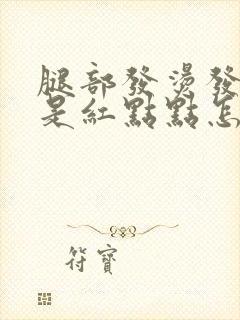 腿部發燙發
是紅點點怎
符寶